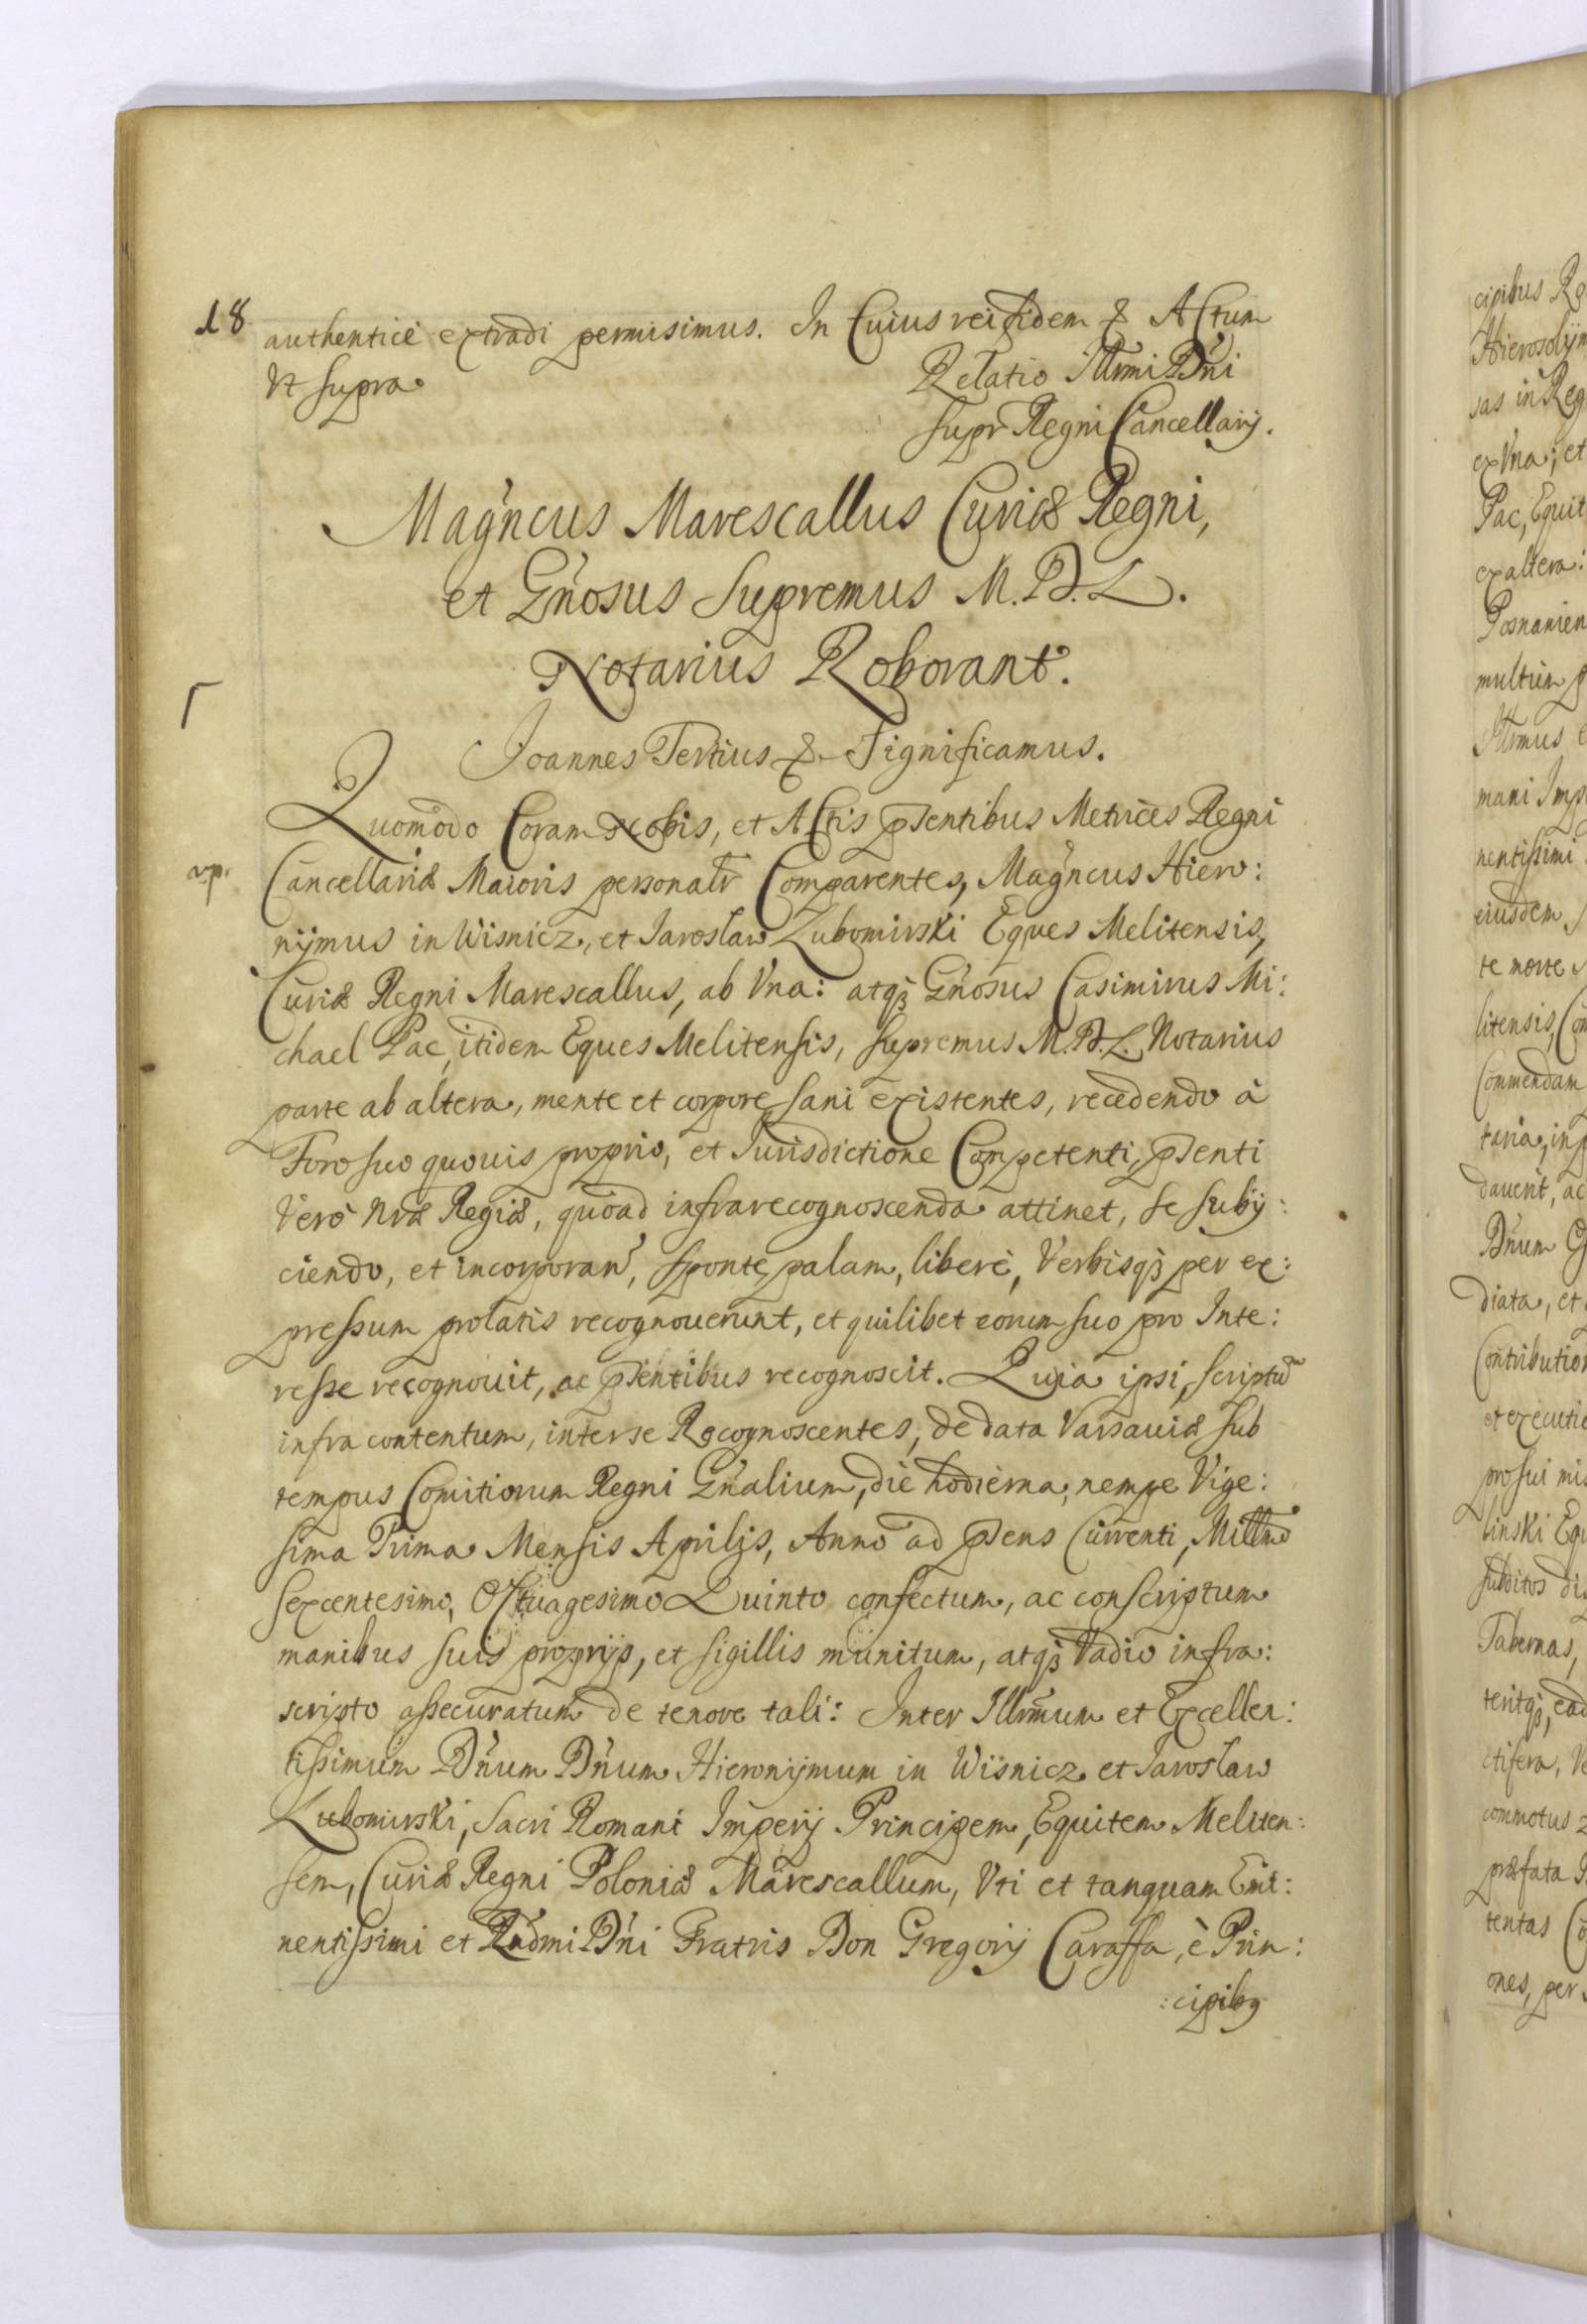 18
authenticè extradi permisimus. In Cuius rei fidem & Actum
Vt supra
Relatio Illrmi Dni
Supr Regni Cancellarij.
Magncus Marescallus Curiæ Regni,
et Gnosus Supremus M.D.L.
Notarius Roborant.
Joannes Tertius & Significamus.
Quomodo Coram Nobis, et Actis pñtibus Metrices Regni
Cancellariæ Maioris personalr Comparentes, Magncus Hiero:
nijmus in Wisnicz, et Iaroslaw Lubomirski Eques Melitensis,
Curiæ Regni Marescallus, ab Vna: atq3 Gnosus Casimirus Mi:
chael Pac, itidem Eques Melitensis, Supremus M.D.L. Notarius
parte ab altera, mente et corpore sani existentes, recedendo à
Foro suo quouis proprio, et Iurisdictione Competenti, psenti
Verò Nræ Regiæ, quoad infrarecognoscenda attinet, se subij:
ciendo, et incorporan, sponte, palam, liberè, Verbisq3 per ex:
pressum prolatis recognouerunt, et quilibet eorum suo pro Inte:
resse recognouit, ac psentibus recognoscit. Quia ipsi, scriptu
infra contentum, inter se Recognoscentes, de data Varsauiæ sub
tempus Comitiorum Regni Gnalium, die hodierna, nempe Vige:
sima Prima Mensis Aprilis, Anno ad psens Currenti, Millmo
Sexcentesimo, Octuagesimo Quinto confectum, ac conscriptum
manibus suis proprijs, et sigillis munitum, atq3 Vadio infra:
scripto assecuratum de tenore tali: Inter Illrmum et Excellen:
tissimum Dnum Dnum Hieronijmum in Wisnicz et Iaroslaw
Lubomirski, Sacri Romani Imperij Principem, Equitem Meliten:
sem, Curiæ Regni Poloniæ Marescallum, Vti et tanquam Emi:
nentissimi et Rndmi Dni Fratris Don Gregorij Caraffa, è Prin:
:cipib9
cipibus
Hierosolijm
sas in Reg
ex Vna; et
Pac, Equit
ex altera:
Posnanien
multum
mani Imp
nentissimi
eiusdem
te morte
litensis,
Commendam
taria, in
dauerit, ac
Dnum
diata, et
Contribution
et executio
pro sui
linski Equ
subditos
Tabernas,
ctifera,
commotus
præfata
tentas
ones, per